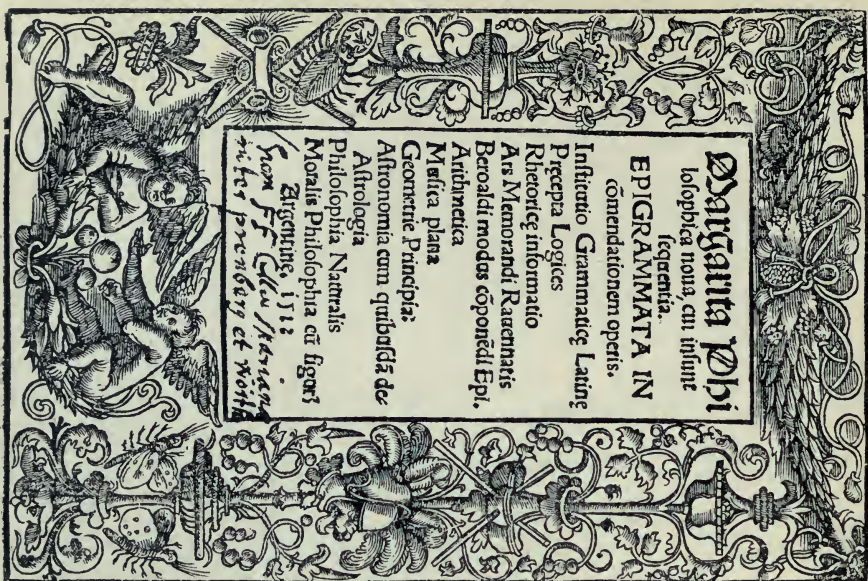 Margarita Phi
losophica noua, cui insunt
sequentia.
EPIGRAMMATA IN
cōmendationem operis.
Institutio Grammaticę Latinę
Pręcepta Logices
Rhetoricę informatio
Ars Memorandi Rauennatis
Beroaldi modus cōponēdi Epl.
Arithmetica
Musica plana
Geometrię Principia
Astronomia cum quibusdā de
Astrologia
Philosophia Naturalis
Moralis Philosophia cū figuris
Argentine, 1512
et